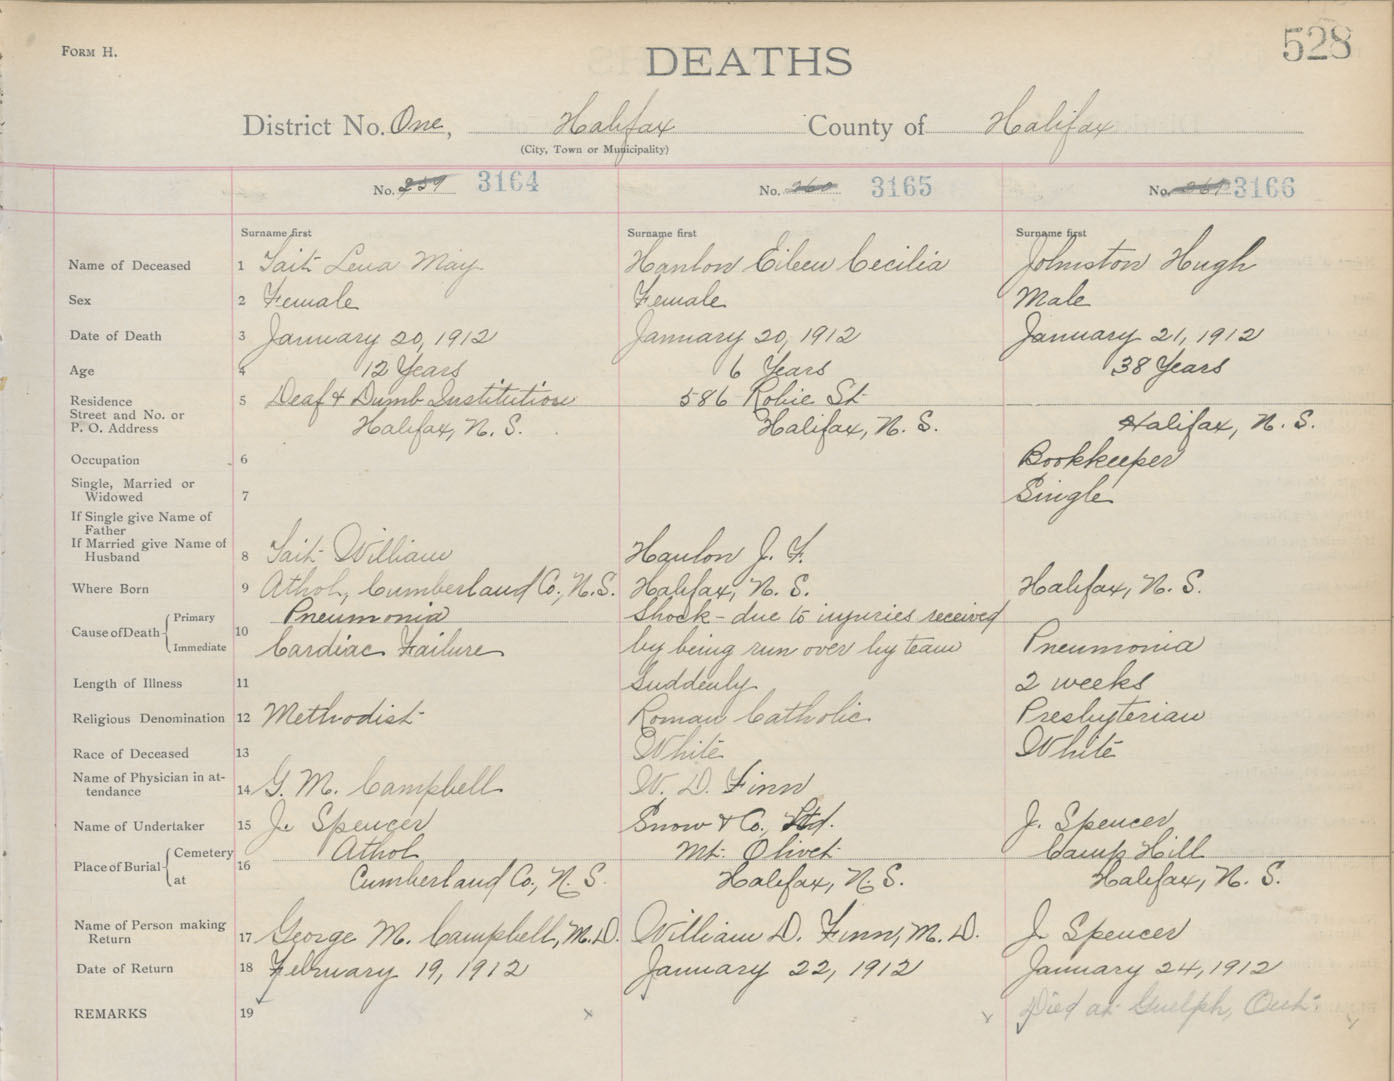 FORM H.
528
DEATHS
District No. One, Halifax County of Halifax
(City, Town or Municipality)
No. 259 3164 No. 260 3165 No. 261 3166
Surname first Surname first Surname first
Name of Deceased 1 Tait Lena May Hanlon Eileen Cecilia Johnston Hugh
Sex 2 Female Female Male
Date of Death 3 January 20, 1912 January 20, 1912 January 21, 1912
Age 4 12 Years 6 Years 38 Years
Residence 5 Deaf & Dumb Institution 586 Robie St.
Street and No. or
P. O. Address Halifax, N. S. Halifax, N. S. Halifax, N. S.
Occupation 6 Bookkeeper
Single, Married or
Widowed 7 Single
If Single give Name of
Father
If Married give Name of
Husband 8 Tait William Hanlon J. F.
Where Born 9 Athol, Cumberland Co., N.S. Halifax, N. S. Halifax, N. S.
Primary Pneumonia Shock - due to injuries received
Cause of Death 10
Immediate Cardiac Failure by being run over by team Pneumonia
Length of Illness 11 Suddenly 2 weeks
Religious Denomination 12 Methodist Roman Catholic Presbyterian
Race of Deceased 13 White White
Name of Physician in at-
tendance 14 G. M. Campbell W. D. Finn
Name of Undertaker 15 J. Spencer Snow & Co., Ltd. J. Spencer
Cemetery Athol Mt. Olivet Camp Hill
Place of Burial 16
at Cumberland Co., N. S. Halifax, N. S. Halifax, N. S.
Name of Person making
Return 17 George M. Campbell, M.D. William D. Finn, M. D. J. Spencer
Date of Return 18 February 19, 1912 January 22, 1912 January 24, 1912
REMARKS 19 Died at Guelph, Ont.